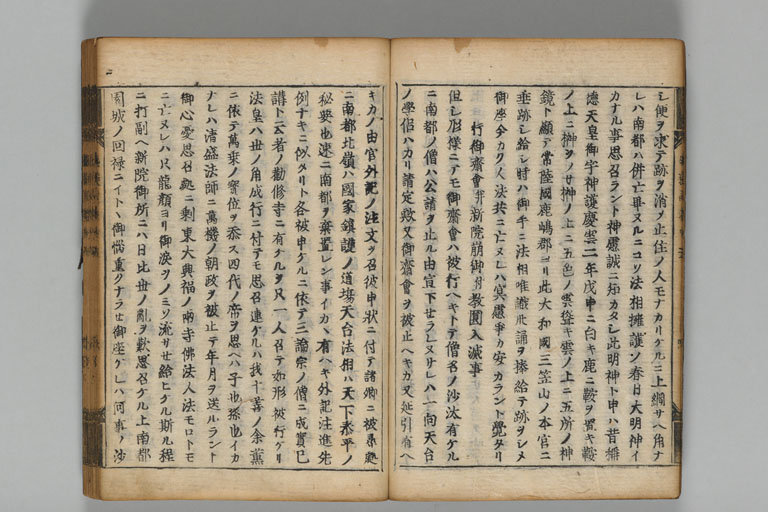 シ便ヲ求テ跡ヲ消シ止住ノ人モナカリケルニ上綱サヘ角ナ
レハ南都ハ併亡畢ヌルニコソ法相擁護ノ春日大明神イ
カナル事思召ラント神慮誠ニ知カタシ此明神ト申ハ昔稱
德天皇御宇神護慶雲二年戊申ニ白キ鹿ニ鞍ヲ置キ鞍
ノ上ニ榊ヲノせ榊ノ上ニ五色ノ雲聳キ雲ノ上ニ五所ノ神
鏡ト顯テ常陸國鹿嶋郡ヨリ此大和國三笠山ノ本宮ニ
垂跡シ給シ時ハ御手ニ法相唯識ノ誦ヲ捧給テ跡ヲシメ
御座今カク人法共ニ亡ヌレハ冥慮争カ安カラント覺タリ
行御齋會并新院崩御付教圓入滅事
但シ形樣ニテモ御齋會ハ被行ヘキトテ僧名ノ沙汰有ケル
ニ南都ノ僧ハ公請ヲ止ル由宣下せラレヌサレハ一向天台
ノ學侶ハカリ請定歟又御齋會ヲ被止ヘキカ又延引有ヘ
キカノ由官外記ノ注文ヲ召彼申狀ニ付テ諸卿ニ被尋處
ニ南都北嶺ハ國家鎮護ノ道場天台法相ハ天下泰平ノ
秘要也速ニ南都ヲ棄置レン事イカヽ有ヘキ外記注進先
例ナキニ似タリト各被申ケルニ依テ三論宗ノ僧ニ成寳已
講ト云者ノ勸修寺ニ有ケルヲ只一人召テ如形被行ケリ
法皇ハ世ノ角成行ニ付テモ思召連ケルハ我十善ノ余薰
ニ依テ萬乗ノ寳位ヲ忝ス四代ノ帝ヲ思ヘハ子也孫也イカ
ナレハ清盛法師ニ萬機ノ朝政ヲ被止テ年月ヲ送ルラント
御心憂思召處ニ剰東大興福ノ兩寺佛法人法モロトモ
ニ亡ヌレハ只龍顏ヨリ御淚ヲノミソ流サせ給ヒケル斯ル程
ニ打副ヘ新院御所ニハ日比世ノ亂ヲ歎思召ケル上南都
園城ノ回祿ニイトヽ御惱重クナラせ御座ケレハ何事ノ沙